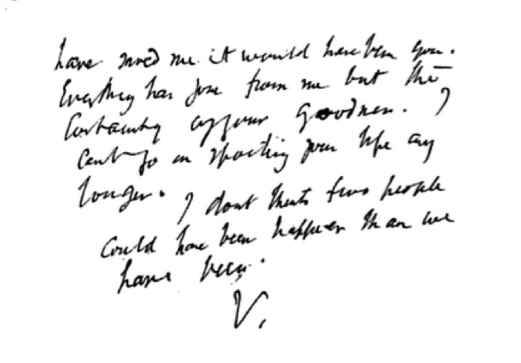 have saved me it would have been you.
Everything has gone from me but the
certainty of your goodness. I
can't go on spoiling your life any
longer. I don't think two people
could have been happier than we
have been.
V.